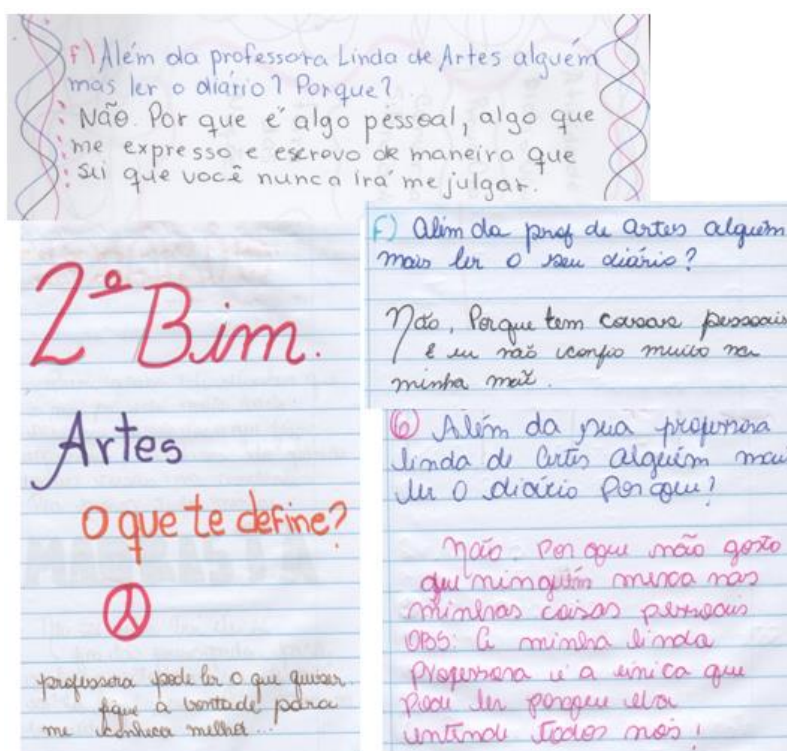 f) Além da professora Linda de Artes alguém
mas ler o diário? Porque?
Não. Por que é algo pessoal, algo que
me expresso e escrevo de maneira que
sei que você nunca irá me julgar.
2º Bim.
Artes
O que te define?
professora pode ler o que quiser.
fique a vontade para
me conheça melhor...
F) Alim da prof de Artes alguém
mais ler o seu diário?
Não, Porque tem coisas pessoais
e eu não confio muito na
minha mãe.
6 Além da sua professora
linda de Artes alguém mais
ler o diário Por que?
Não. Por que não gosto
que ninguém mexa nas
minhas coisas pessoais
OBS: A minha linda
Professora é a única que
Pode ler porque ela
entende todos nós!